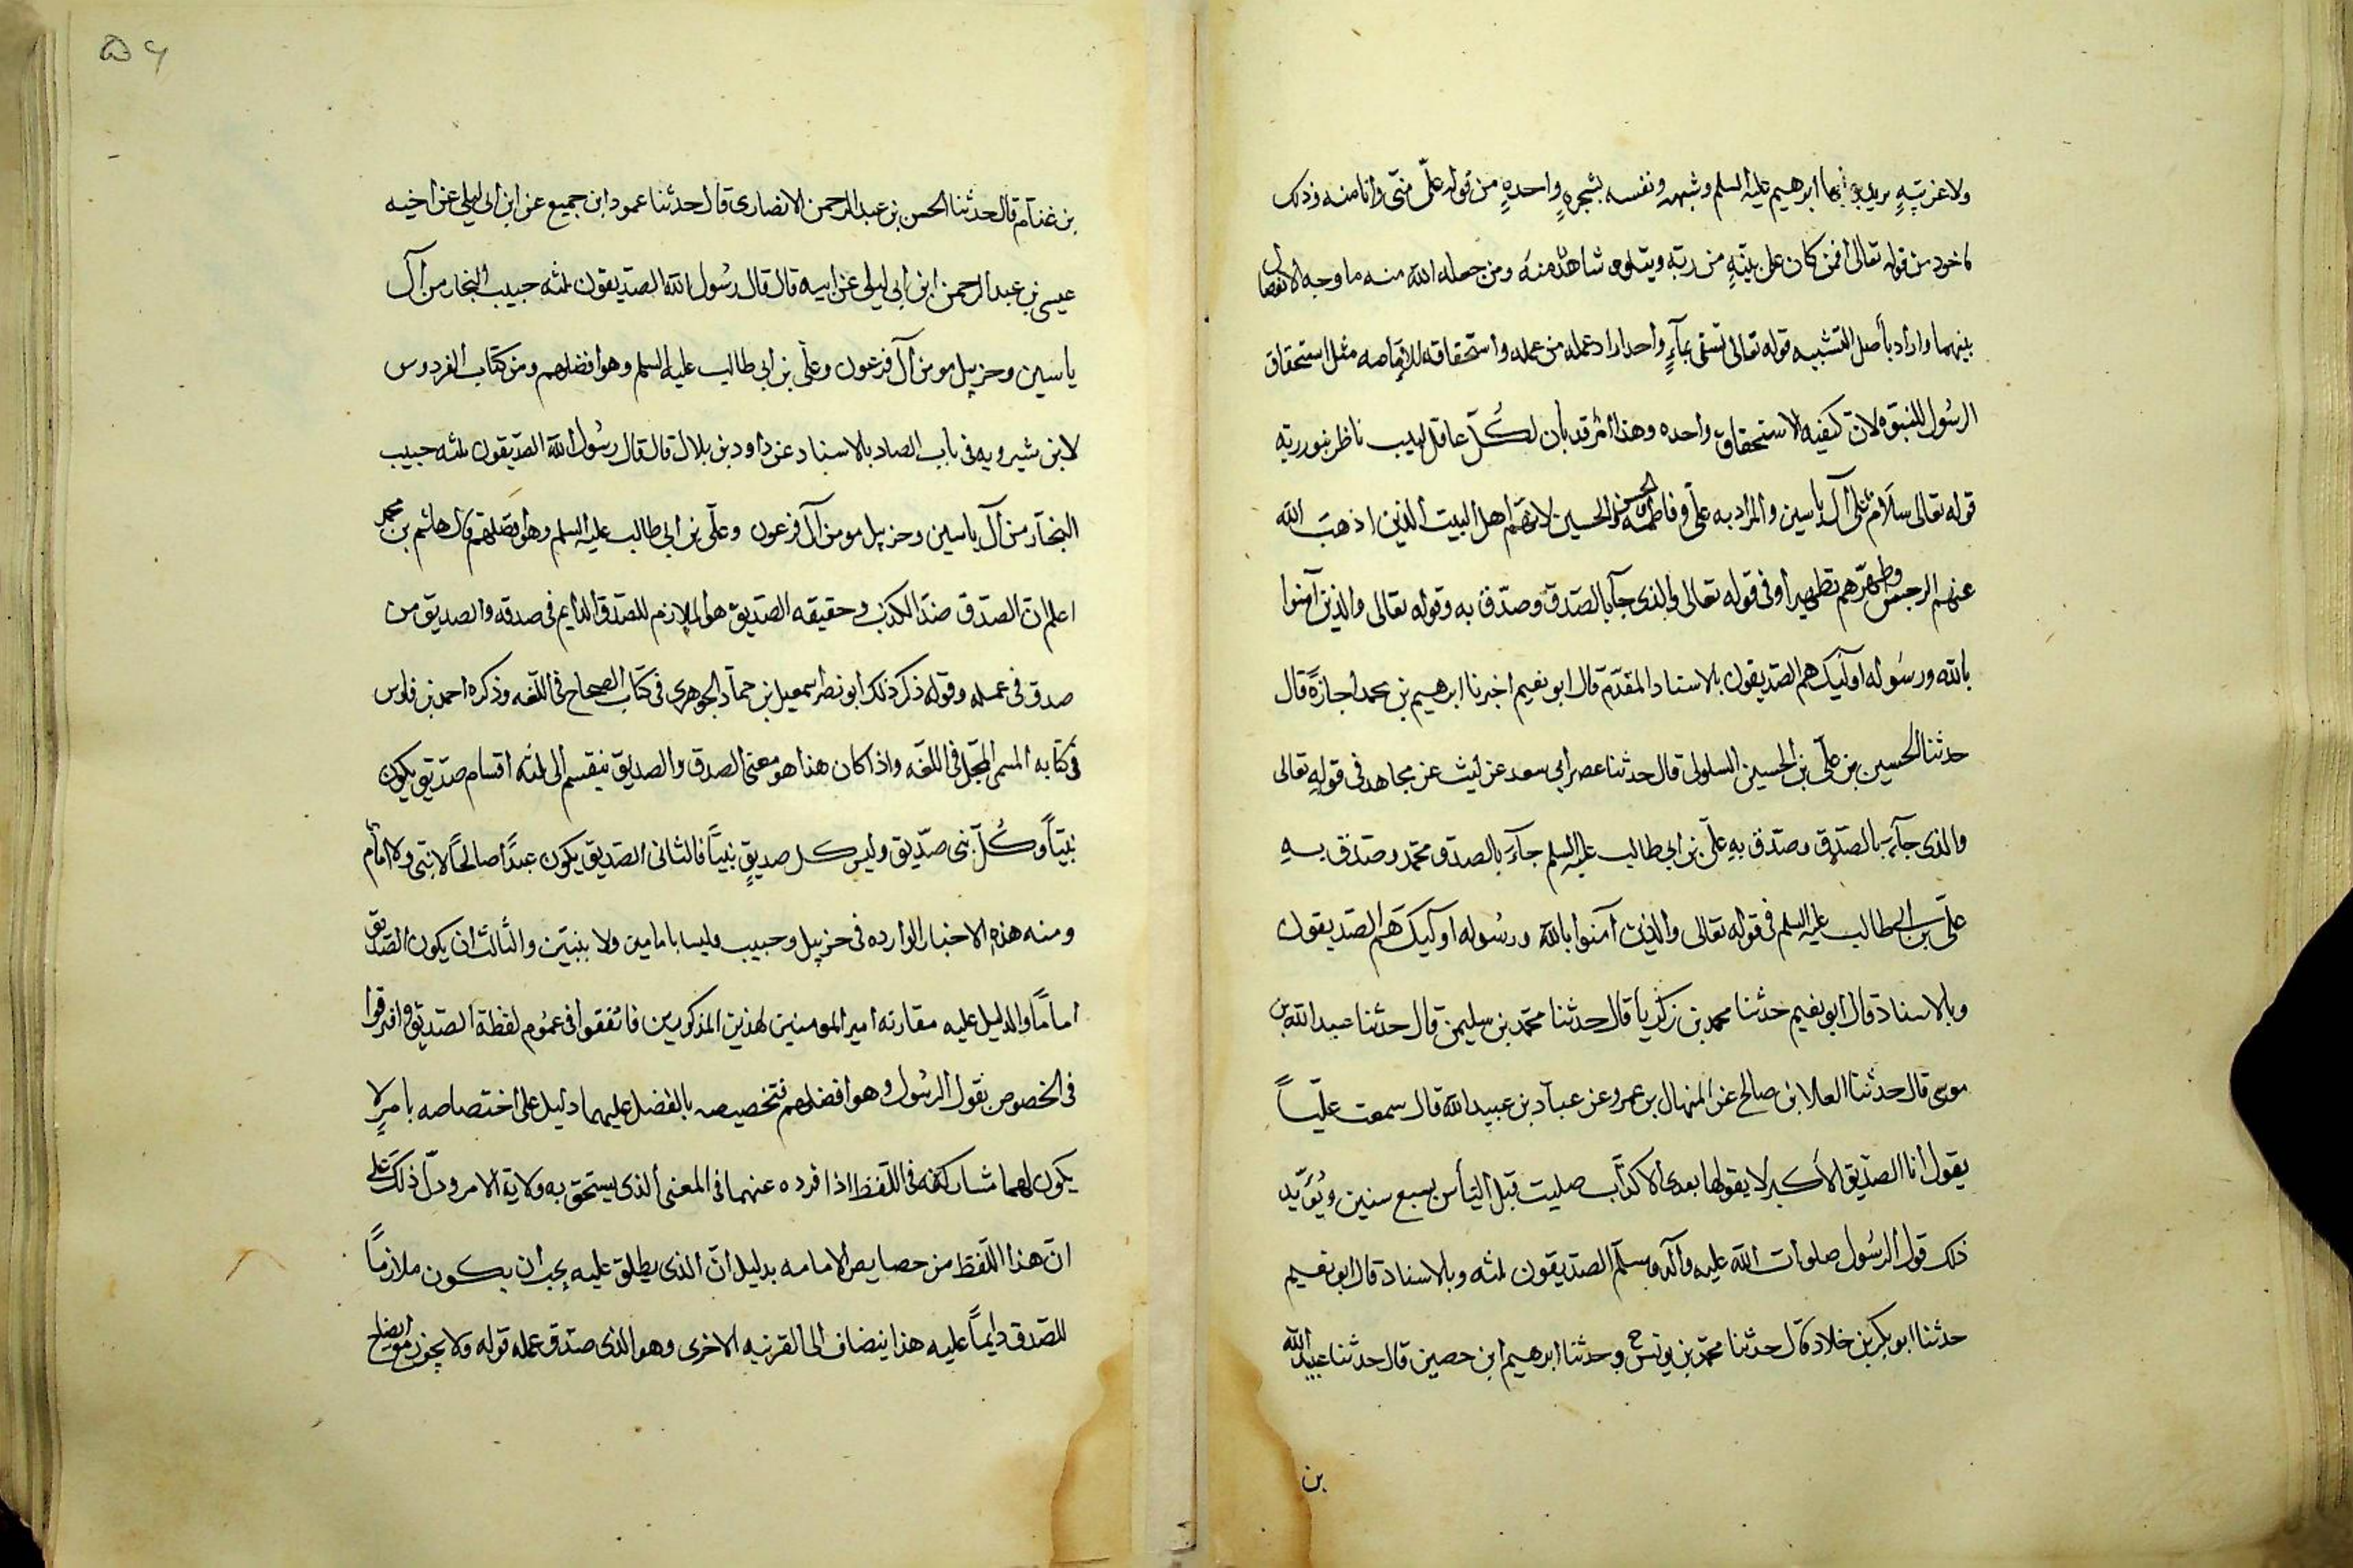 ولا غربيةٍ يريد بها ابرهيم عليه السلم وشبهه ونفسه بشجرهٍ واحدهٍ من قوله علىّ منّى وانا منه وذلك
ماخوذ من قوله تعالى افمن كان على بينهٍ من ربه ويتلوه شاهدٌ منه ومن جعله الله منه ما وجه الانفصال
بينهما واراد بأصل التشبيه قوله تعالى تسقى بماءٍ واحد اراد عمله من عمله واستحقاقه للامامه مثل استحقاق
الرسُول للنبوه لان كيفيه الاستحقاق واحده وهذا امرٌ قد بان لكُلّ عاقل لبيب ناظر بنور ربه
قوله تعالى سَلَامٌ عَلى آل ياسين والمراد به علىّ وفاطمه والحسن والحسين لانهم اهل البيت الذين اذهبَ الله
عنهم الرجس وطهّرهم تطهيرا وفى قوله تعالى والذى جآء بالصّدق وصدّق به وقوله تعالى والذين آمنوا
بالله ورسُوله اوليٓك هم الصّديقون بالاسناد المقدّم قال ابو نعيم اخبرنا ابرهيم بن محمد اجازةً قال
حدثنا الحسين بن علىّ بن الحسين السلولى قال حدثنا عمر ابى سعد عن ليث عن مجاهد فى قوله تعالى
والذى جآءَ بالصّدق وصدّق بهِ علىّ بن ابى طالب عليه السلم جآءَ بالصدق محمّد وصدّق بهِ
علىّ بن ابى طالب عليه السلم فى قوله تعالى والذين آمنوا بالله ورسُوله اوليٓك هم الصّديقون
وبالاسناد قال ابو نعيم حدثنا محمد بن زكريا قال حدثنا محمّد بن سليمن قال حدثنا عبيد الله بن
موسى قال حدثنا العلا ابن صالح عن المنهال بن عمرو عن عباد بن عبيد الله قال سمعت عليّاً
يقول انا الصدّيق الأكبر لا يقولها بعدى الا كذّاب صليت قبل النّاس بسبع سنين ويُؤَيّد
ذلك قول الرسُول صلوات الله عليه وآله وسلّم الصّديقون ثلثه وبالاسناد قال ابو نعيم
حدثنا ابو بكر بن خلاد قال حدثنا محمّد بن يونس ح وحدثنا ابرهيم ابن حصين قال حدثنا عبيد الله
بن
۵۶
بن غنّام قال حدثنا الحسن بن عبد الرحمن الانصارى قال حدثنا عمرو ابن جميع عن ابن ابى ليلى عن اخيه
عيسى بن عبد الرحمن ابن ابى ليلى عن ابيه قال قال رسُول الله الصدّيقون ثلثه حبيب النجار من آل
ياسين وحزبيل مومن آل فرعون وعلّى بن ابى طالب عليه السلم وهو افضلهم ومن كتاب الفردوس
لابن شيرويه فى باب الصاد بالاسناد عن داود بن بلال قال قال رسُول الله الصدّيقون ثلثه حبيب
النجّار من آل ياسين وحزبيل مومن آل فرعون وعلّى بن ابى طالب عليه السلم وهو افضلهم قال هاشم بن محمد
اعلم ان الصدق ضدّ الكذب وحقيقه الصدّيق هو الملازم للصّدق الدايم فى صدقه والصديق من
صدق فى عمله وقوله ذكر ذلك ابو نصر اسمعيل بن حمّاد الجوهرى فى كتاب الصحاح فى اللّغه وذكره احمد بن فارس
فى كتابه المسمى المجمل فى اللّغه واذا كان هذا هو معنى الصدق والصديق فينقسم الى ثلثه اقسام صدّيق يكون
نبيّاً وكُلّ نبى صدّيق وليس كل صديقٍ نبيّاً فالثانى الصّديق يكون عبدًا صالحًا لا نبى ولا امام
ومنه هذه الاخبار الوارده فى حزبيل وحبيب وليسا بامامين ولا بنبيّين والثالث ان يكون الصّديق
امامًا والدليل عليه مقارنه امير المومنين لهذين المذكورين فاتفقوا فى عمُوم لفظة الصّديق وافترقوا
فى الخصوص بقول الرسُول وهو افضلهم فتخصيصه بالفضل عليهما دليل على اختصاصه بامرٍ لا
يكون لهما مشاركته فى اللّفظ اذا فرده عنهما فى المعنى الذى يستحق به ولاية الامر ودلّ ذلك على
انّ هذا اللّفظ من خصايص الامامه بدليل انّ الذى يطلق عليه يجب ان يكون ملازمًا
للصّدق دايمًا عليه هذا ينضاف الى القرينه الاخرى وهو الذى صدّق عمله قوله ولا يجوز ايضاح